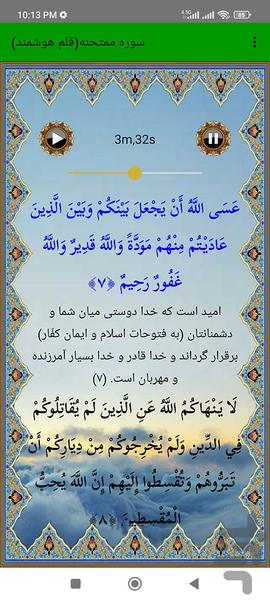 10:13 PM
سوره ممتحنه(قلم هوشمند)
3m,32s
عَسَى اللَّهُ أَنْ يَجْعَلَ بَيْنَكُمْ وَبَيْنَ الَّذِينَ
عَادَيْتُمْ مِنْهُمْ مَوَدَّةً وَاللَّهُ قَدِيرٌ وَاللَّهُ
غَفُورٌ رَحِيمٌ ﴿۷﴾
امید است که خدا دوستی میان شما و
دشمنانتان (به فتوحات اسلام و ایمان کفّار)
برقرار گرداند و خدا قادر و خدا بسیار آمرزنده
و مهربان است. (۷)
لَا يَنْهَاكُمُ اللَّهُ عَنِ الَّذِينَ لَمْ يُقَاتِلُوكُمْ
فِي الدِّينِ وَلَمْ يُخْرِجُوكُمْ مِنْ دِيَارِكُمْ أَنْ
تَبَرُّوهُمْ وَتُقْسِطُوا إِلَيْهِمْ إِنَّ اللَّهَ يُحِبُّ
الْمُقْسِطِينَ ﴿۸﴾